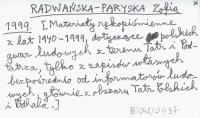 RADWAŃSKA-PARYSKA Zofia
1999. [Materiały rękopiśmienne
z lat 1940-1999, dotyczące polskich
gwar ludowych z terenu Tatr i Pod-
tatrza, tylko z zapisów własnych
bezpośrednio od informatorów ludo-
wych, głównie z obszaru Tatr Polskich
i Podhala.]